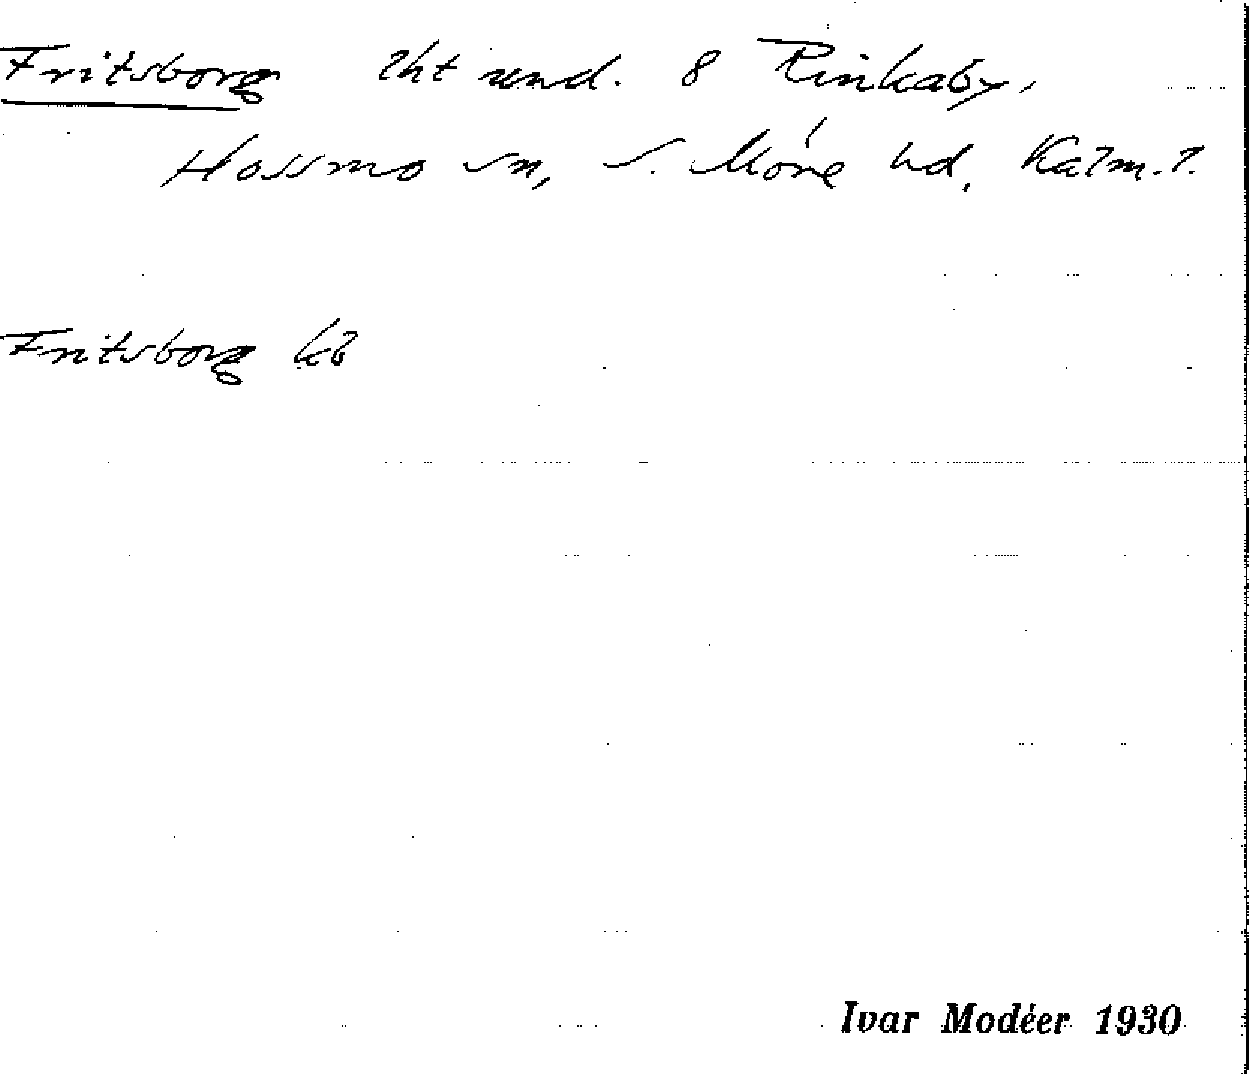 Fritsborg lht und. 8 Rinkaby,
Hossmo sn, S. Möre hd, Kalm. l.
Fritsborg kb
Ivar Modéer 1930